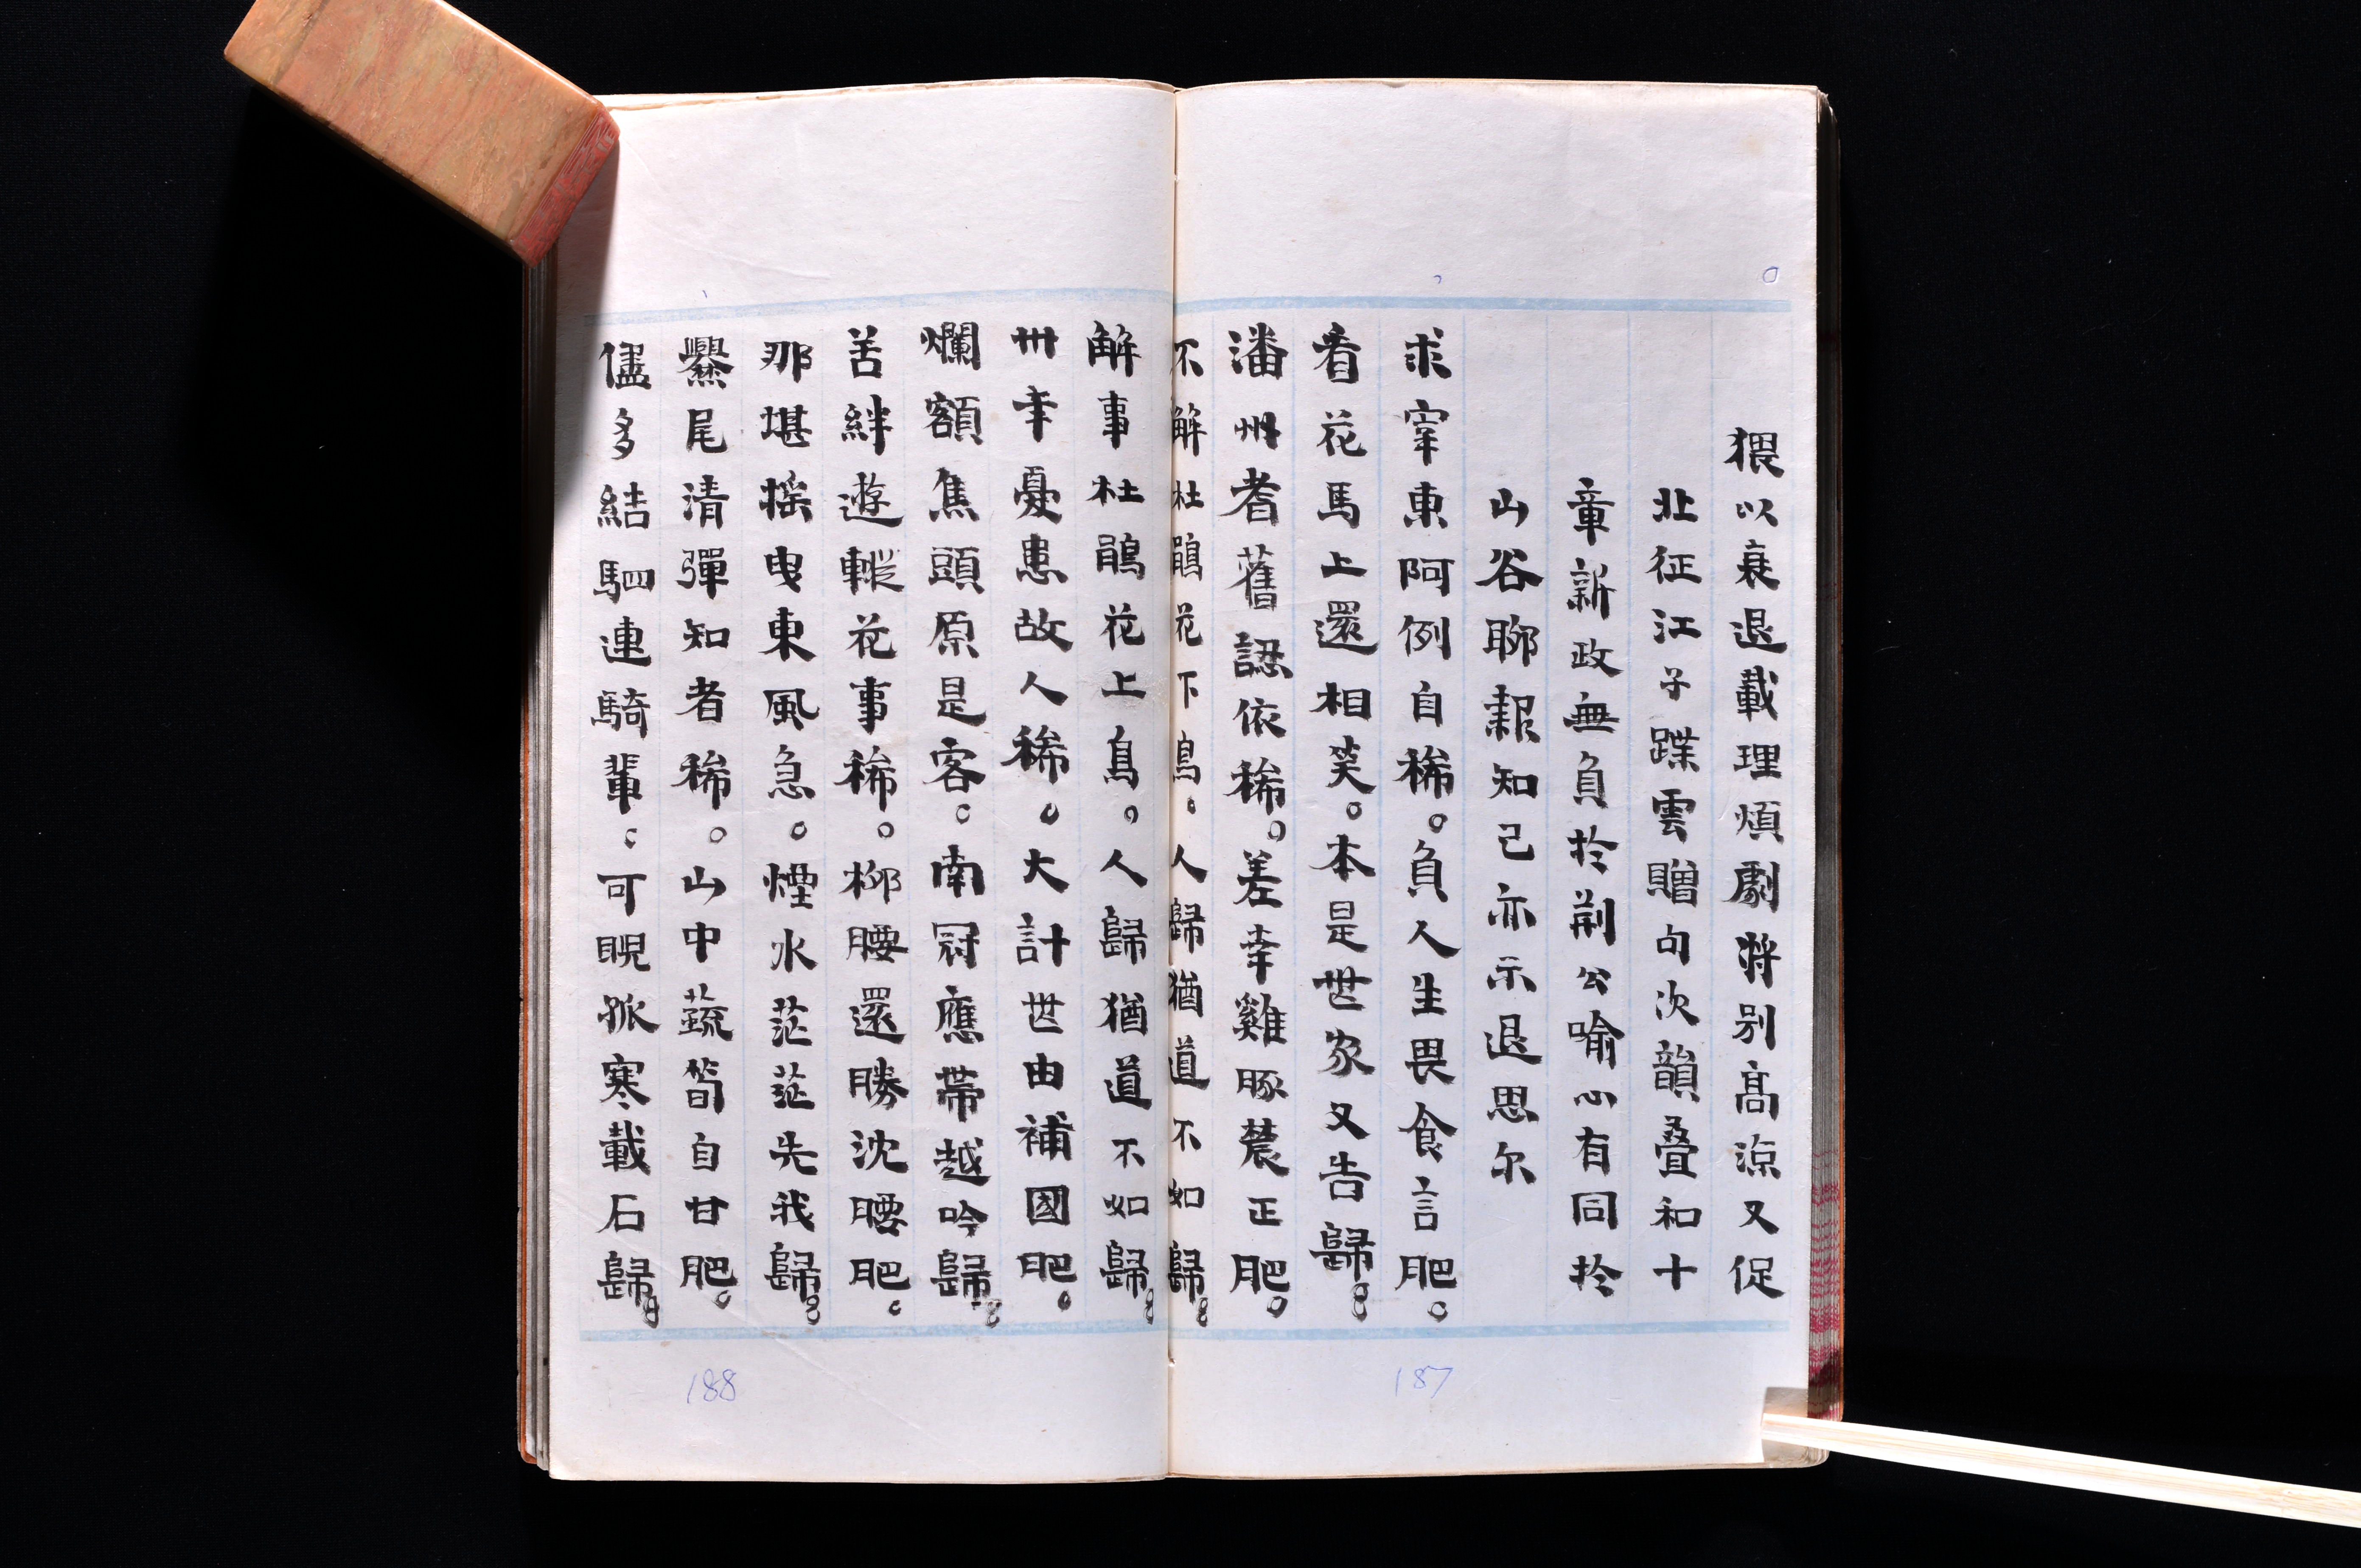 猥以衰退載理煩劇將别髙涼又促
北征江子蹀雲贈句次韻叠和十
章新政無負扵荆公喻心有同扵
山谷聊報知己亦示退思尔
求宰東阿例自稀。負人生畏食言肥。
看花馬上還相笑。本是世家又告歸。
潘州耆舊認依稀。差幸雞豚農正肥。
不解杜鵑花下鳥。人歸猶道不如歸。
187
解事杜鵑花上鳥。人歸猶道不如歸。
卅年憂患故人稀。大計世由補國肥。
爛額焦頭原是客。南冠應帶越吟歸。
苦絆遊轍花事稀。柳腰還勝沈腰肥。
那堪摇曳東風急。煙水茫茫先我歸。
爨尾清彈知者稀。山中蔬筍自甘肥。
儘多結駟連騎輩。可睨孤寒載石歸。
188